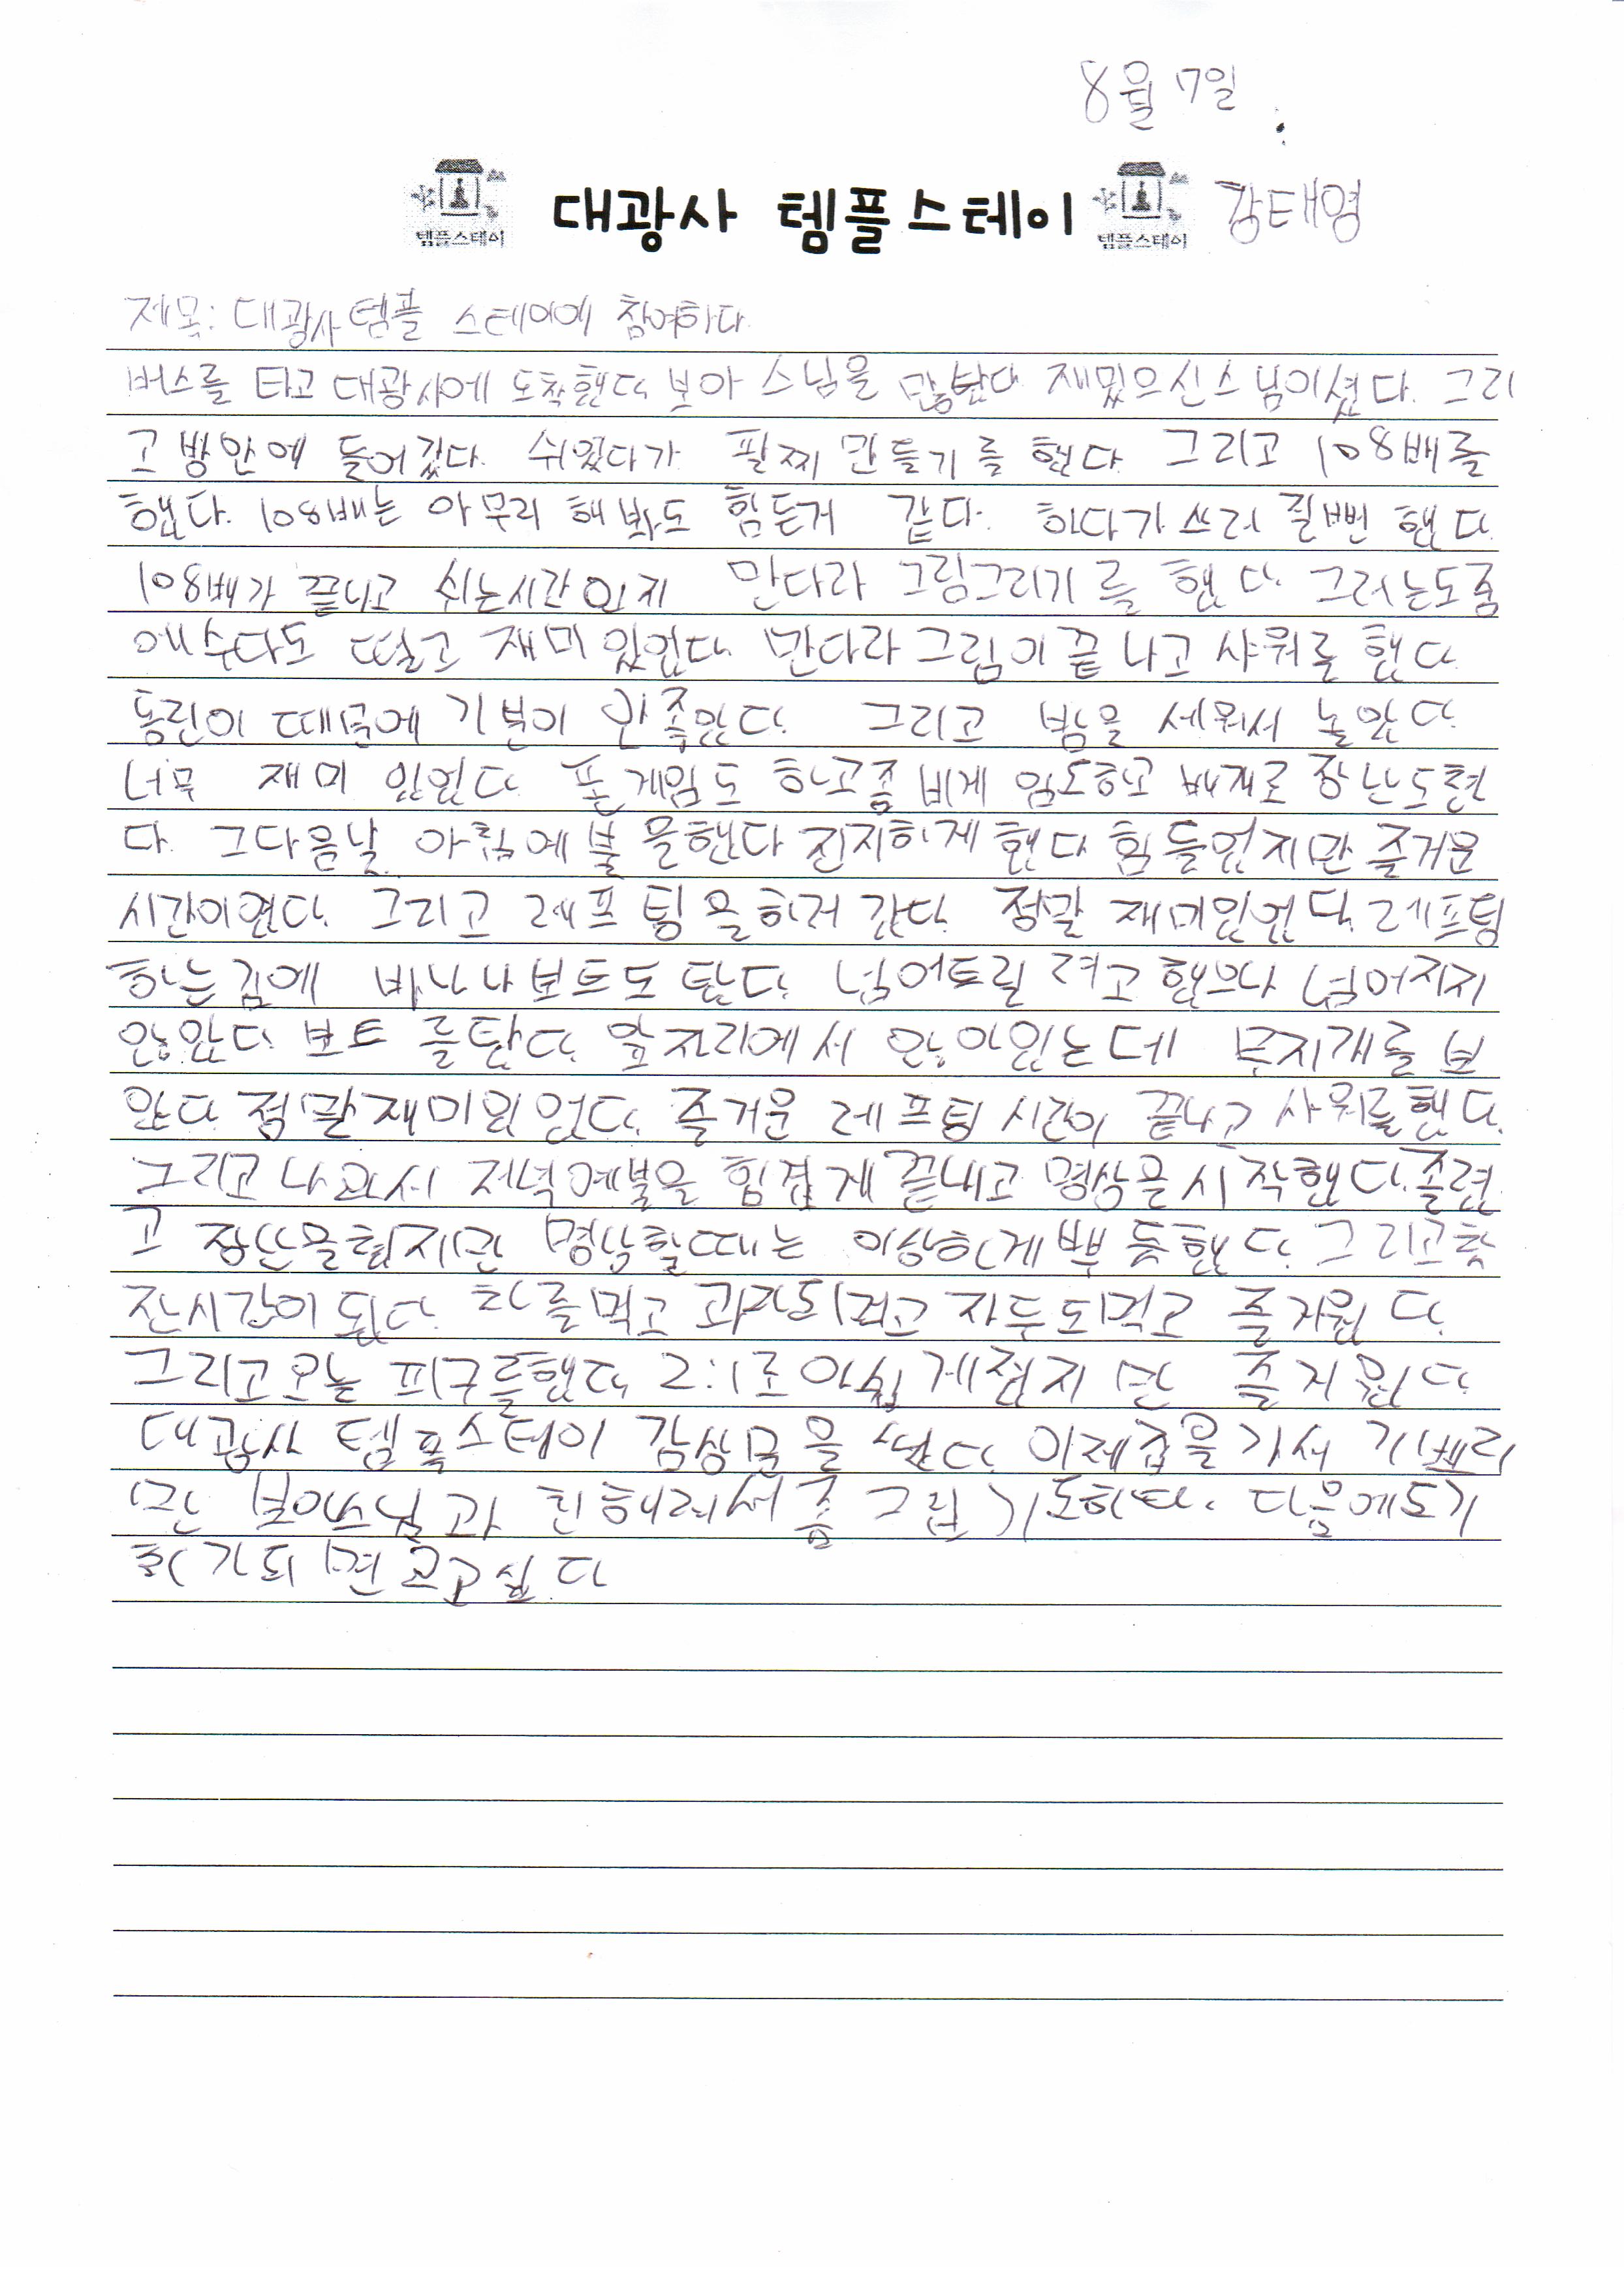 8월 7일
템플스테이 대광사 템플스테이 템플스테이 강태영
제목: 대광사템플 스테이에 참여하다
버스를 타고 대광사에 도착했다 보아 스님을 만났다 재밌으신스님이셨다. 그리
고 방안에 들어갔다. 쉬었다가 팔찌 만들기를 했다. 그리고 108배를
했다. 108배는 아무리 해봐도 힘든거 같다. 하다가쓰러질뻔 했다.
108배가 끝나고 쉬는시간인지 만다라 그림그리기를 했다. 그러는도중
에수다도 떨고 재미있었다. 만다라그림이끝나고 샤워를 했다.
때문에 기분이 안좋았다. 그리고 밤을 세워서 놀았다.
너무 재미 있었다. 폰게임도 하고좀비게임도하고 베개로 장난도쳤
다. 그다음날 아침예불을했다 진지하게 했다 힘들었지만 즐거운
시간이였다. 그리고 레프팅을하러 갔다. 정말 재미있었다. 레프팅
하는김에 바나나보트도 탔다. 넘어트릴려고 했으나 넘어지지
않았다. 보트를탔다. 앞자리에서 앉아있는데 무지개를 보
았다 정말재미있었다. 즐거운 레프팅 시간이 끝나고 샤워를했다.
그리고나와서 저녁예불을 힘겹게끝내고 명상을시작했다. 졸렸
고 장난을쳤지만 명상할때는 이상하게뿌듯했다. 그리고
시간이 됬다. 차를먹고 과자도먹고 자두도먹고 즐거웠다.
그리고오늘 피구를했다. 2:1로아쉽게졌지만 즐거웠다.
대광사 템플스테이 감상문을 썼다. 이제집을가서 기쁘지
만 보아스님과 친해져서좀 그립기도하다. 다음에도기
회가되면 오고싶다